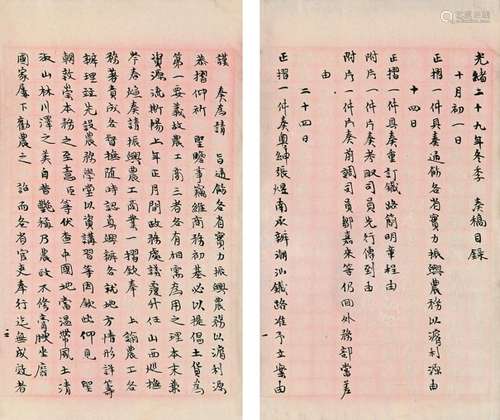 光緒二十九年冬季 奏稿目錄
十月初一日
正摺一件奏通飭各省實力振興農務以濬利源由
十四日
正摺一件具奏重訂鐵路簡明章程由
附片一件片奏考取司員先行傳到由
附片一件片奏前調司員鄒嘉來等仍回外務部當差
由
二十四日
正摺一件奏粵紳張煜南承辦潮汕鐵路准予立案由
一
謹 奏為請 旨通飭各省實力振興農務以濬利源
恭摺仰祈 聖鑒事竊維商務初基必以提倡土貨為
第一要義故農工商三者各有相需為用之理本末兼
資源流斯暢上年正月間政務處議覆升任山西巡撫
岑春煊奏振興農工商業一摺欽奉 上諭農工各
務著責成各督撫隨時認真興辦各就地方情形詳籌
辦理並先設農務學堂以資講習等因欽此仰見 聖
朝敦崇本務之至意臣等伏查中國地當溫帶風土清
淑山林川澤之美自昔艷稱乃農政不修膏腴坐廢
國家屢下勸農之 詔而各省官吏奉行迄無成效者
二